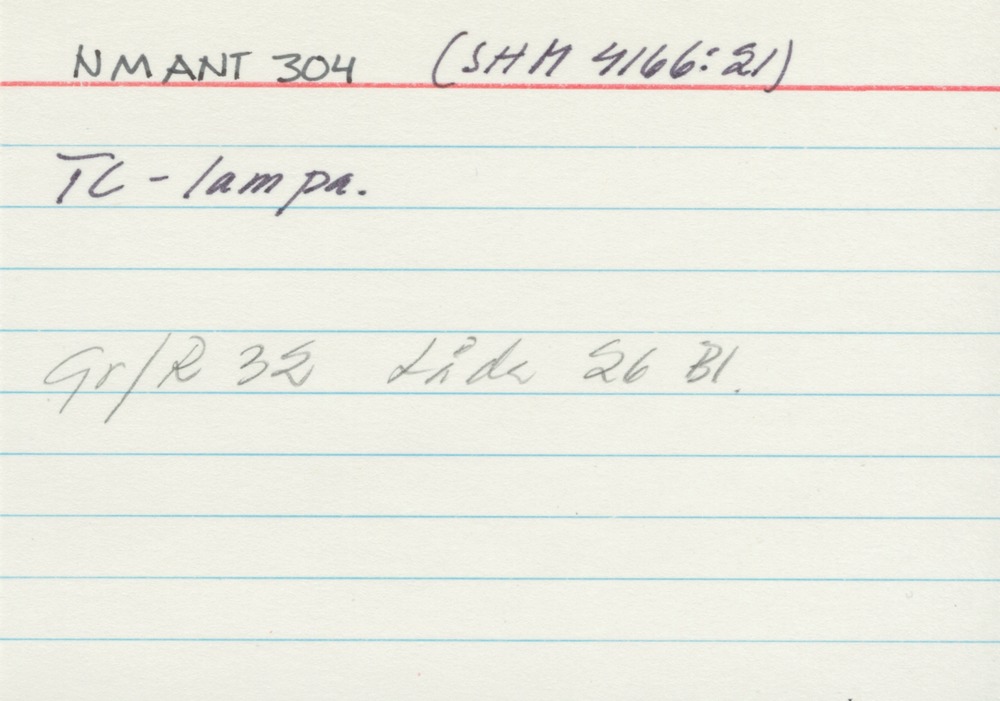 NM ANT 304 (SHM 4166:21)
TC-lampa.
Gr/R 32 Låda 26 Bl.